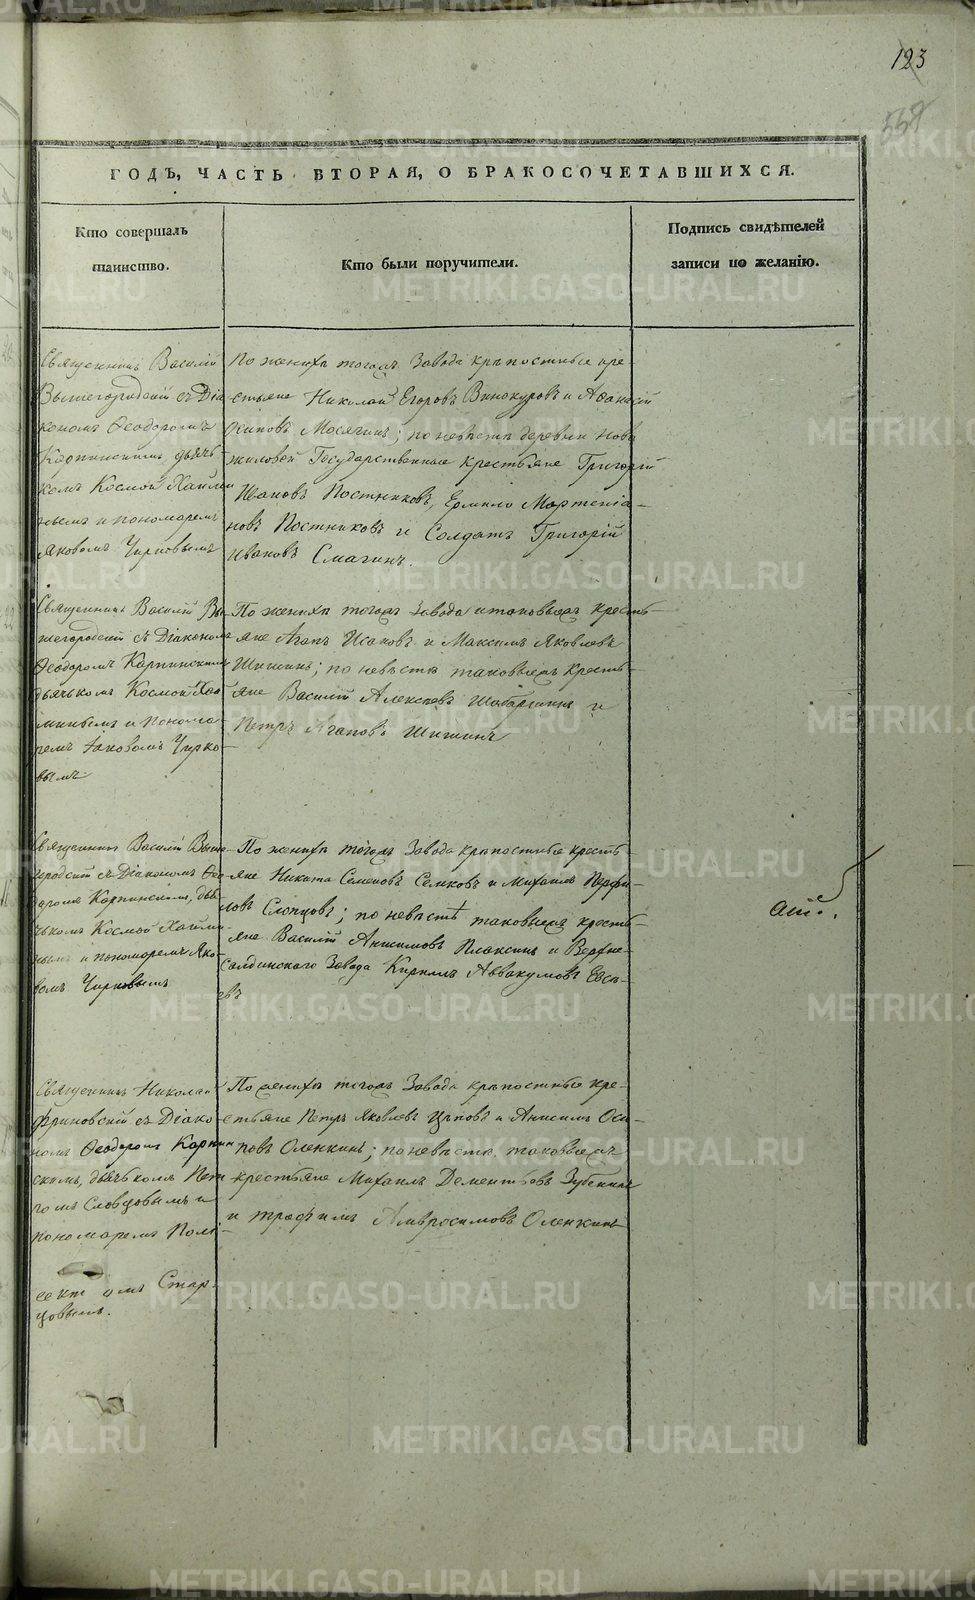 123
559
ГОДЪ, ЧАСТЬ ВТОРАЯ, О БРАКОСОЧЕТАВШИХСЯ.
Кто совершалъ
таинство.
Кто были поручители.
Подпись свидѣтелей
записи по желанію.
Священникъ Василій
Вышегородскій съ Діа-
кономъ Ѳеодоромъ
Карпинскимъ дьяч-
комъ Космой Хайми
нымъ и пономаремъ
Яковомъ Чирковымъ
По женихѣ тогожъ Завода крѣпостные кре-
стьяне Николай Егоровъ Винокуровъ и Аѳанасій
Осиповъ Мосягинъ; по невѣстѣ деревни Ново
жиловой Государственные крестьяне Григорій
Ивановъ Постниковъ, Ермило Мартемья-
новъ Постниковъ и Солдатъ Григорій
Ивановъ Смагинъ.
Священникъ Василій Вы-
шегородскій съ Діакономъ
Ѳеодоромъ Карпинскимъ
дьячькомъ Космой Хай
минымъ и понома-
ремъ Іаковомъ Чирко-
вымъ
По женихѣ тогожъ Завода и таковыежъ кресть-
яне Агапъ Исаковъ и Максимъ Яковлевъ
Шишинъ; по невѣстѣ таковыежъ кресть-
яне Василій Алексѣевъ Шабаршинъ и
Петръ Агаповъ Шишинъ
Священникъ Василій Выше-
городскій съ Діакономъ Ѳео-
доромъ Карпинскимъ, дья-
чькомъ Космой Хайми-
нымъ и пономаремъ Яко-
вомъ Чирковымъ
По женихѣ тогожъ Завода крѣпостные кресть-
яне Никита Семеновъ Семковъ и Михаилъ Перфи-
ловъ Слопцовъ; по невѣстѣ таковыежъ кресть-
яне Василій Анисимовъ Плаксинъ и Верхне-
салдинскаго Завода Кирилъ Аввакумовъ Евсѣ-
евъ
Священникъ Николай
съ Діако-
номъ Ѳеодоромъ Карпин
скимъ, дьячькомъ Пет
ромъ Словцовымъ и
пономаремъ Полі
евктомъ Стар-
цовымъ.
По женихѣ тогожъ Завода крѣпостные кре-
стьяне Петръ Яковлевъ и Анисимъ Оси-
повъ Оленкинъ; по невѣстѣ таковыежъ
крестьяне Михаилъ Дементьевъ Зубкинъ
и Трофимъ Амвросимовъ Оленкинъ
METRIKI.GASO-URAL.RU